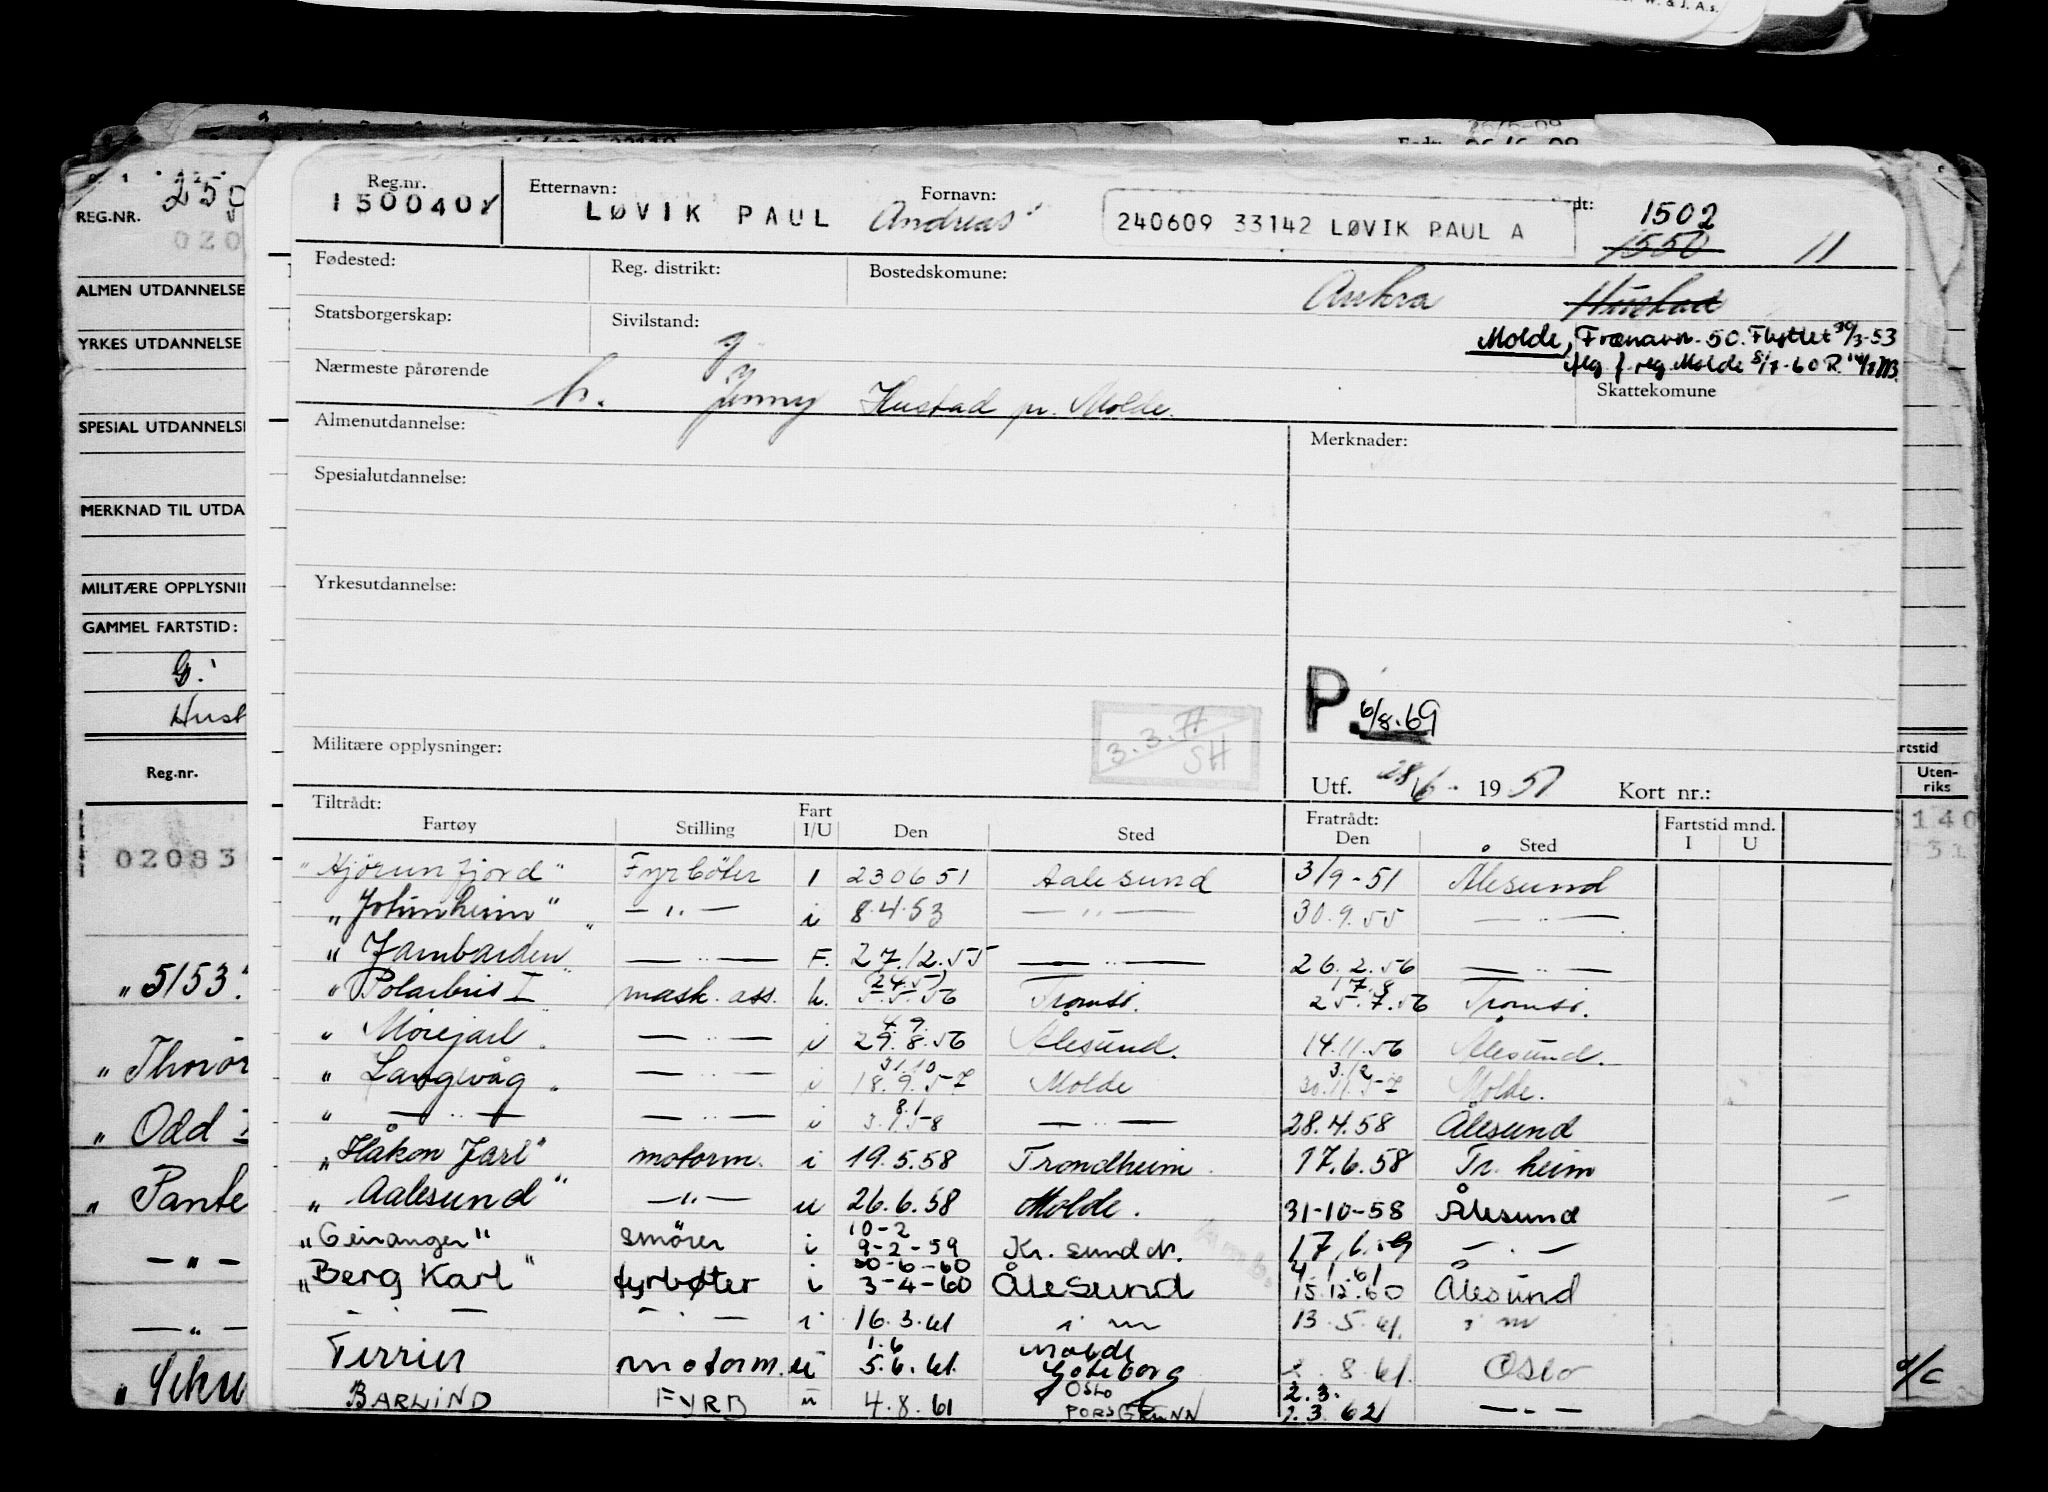 W. & J. A.s.
REG.NR.
ALMEN UTDANNELSE
YRKES UTDANNELSE
SPESIAL UTDANNELSE
MERKNAD TIL UTDA
MILITÆRE OPPLYSNIN
GAMMEL FARTSTID:
G.
Hust
Reg.nr.
02083
"5153."
"Odd I
"Pante
— " —
— " —
rtstid
Uten-
riks
140
Reg.nr. Etternavn: Fornavn: dt:
150040 LØVIK PAUL Andreas 240609 33142 LØVIK PAUL A 1502
1550 11
Fødested: Reg. distrikt: Bostedskomune: Aukra Hustad
Statsborgerskap: Sivilstand: g Molde, Frænavn. 50. Flyttet 30/3-53
Nærmeste pårørende Skattekomune
h. Jenny Hustad pr. Molde.
Almenutdannelse: Merknader:
Spesialutdannelse:
Yrkesutdannelse:
P. 6/8.69
3.3.71
SH
Militære opplysninger:
Utf. 28/6- 1951 Kort nr.:
Tiltrådt: Fratrådt: Fartstid mnd.
Fartøy Stilling Fart I/U Den Sted Den Sted I U
"Hjørunfjord" Fyrböter I 230651 Aalesund 3/9-51 Ålesund
"Jotunheim" — " — i 8.4.53 — " — 30.9.55 — " —
"Jarnbarden" — " — F. 27.12.55 — " — 26.2.56 — " —
24.5 17.8
"Polarbris I" mask. ass. h. 5.5.56 Tromsö. 25.7.56 Tromsö.
4.9.
"Mørejarl" — " — i 29.8.56 Ålesund. 14.11.56 Ålesund.
31.10 3.12
"Langvåg" — " — i 18.9.57 Molde 30.11.57 Molde.
8.1
" — " — — " — i 3.1.58 — " — 28.4.58 Ålesund
"Håkon Jarl" motorm. i 19.5.58 Trondheim 17.6.58 Tr.heim
"Aalesund" — " — u 26.6.58 Molde. 31-10-58 Ålesund
10-2
"Geiranger" smörer i 9-2-59 Kr. sund N. 17.6.59 — " —
30-6-60 4.1.61
"Berg Karl" fyrbøter i 3-4-60 Ålesund 15.12.60 Ålesund
— " — — " — i 16.3.61 i m 13.5.61. i m
1.6 Molde
Terrier motorm. u 5.6.61. Göteborg 2.8.61. Oslo
Oslo 2.3.
BARWIND FYRB u 4.8.61 PORSGRUNN 1.3.62 — " —